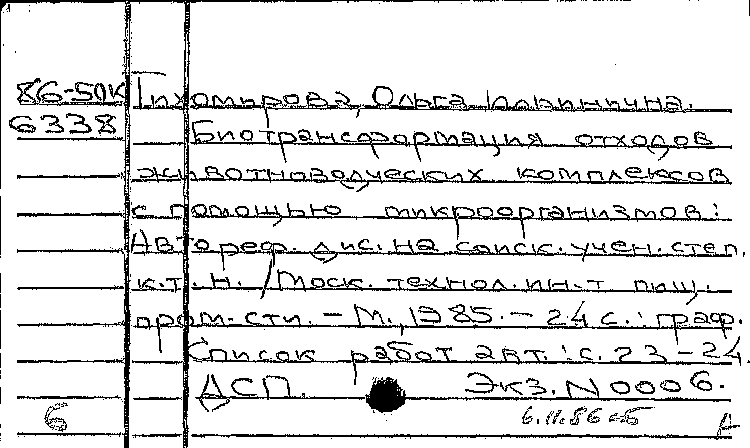 86-50К Тихомирова, Ольга Ильинична.
6338 Биотрансформация отходов
животноводческих комплексов
с помощью микроорганизмов:
Автореф. дис. на соиск. учен. степ.
к.т.н. /Моск. технол. ин-т пищ.
пром-сти. - М., 1985. - 24 с.: граф.
Список работ авт.: с. 23-24.
ДСП. Экз. N 0006.
6 6.11.86 А